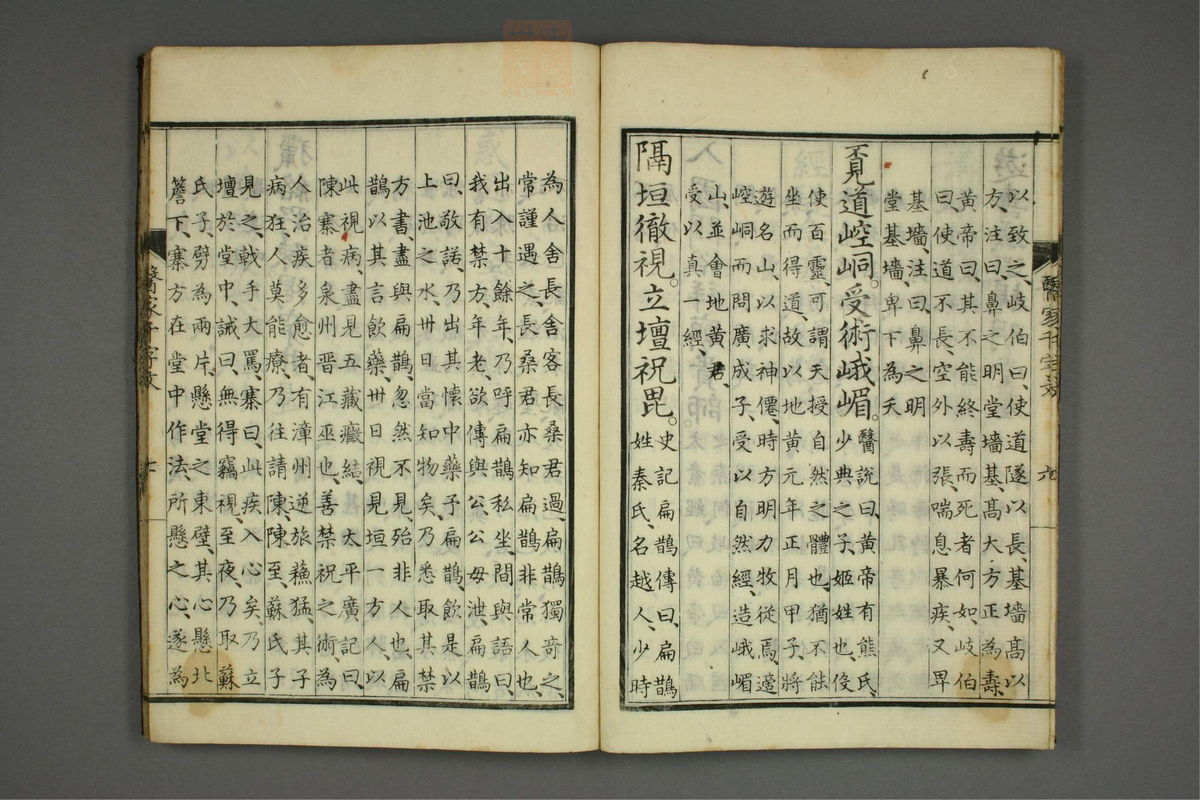 以致之、岐伯曰、使道隧以長、基墻髙以
方、注曰、鼻之明堂墻基髙大方正為壽、
黄帝曰、其不能終壽而死者何如、岐伯
曰、使道不長、空外以張、喘息暴疾、又卑
基墻、注曰、鼻之明
堂基墻、卑下為夭
覔道崆峒。受術峨嵋。
醫說曰、黄帝有熊氏、
少典之子、姬姓也、伇
使百靈、可謂天授自然之體也、猶不能
坐而得道、故以地黄元年正月甲子、將
遊名山、以求神僊、時方明力牧從焉、適
崆峒而問廣成子、受以自然經、造峨嵋
山、並會地黄君、
受以真一經、
隔垣徹視。立壇祝毘。
史記扁鵲傳曰、扁鵲
姓秦氏、名越人、少時
為人舍長、舍客長桑君過、扁鵲獨竒之、
常謹遇之、長桑君亦知扁鵲非常人也、
出入十餘年、乃呼扁鵲私坐、間與語曰、
我有禁方、年老、欲傳與公、公毋泄、扁鵲
曰、敬諾、乃出其懷中藥予扁鵲、飲是以
上池之水、卅日當知物矣、乃悉取其禁
方書、盡與扁鵲、忽然不見、殆非人也、扁
鵲以其言飲藥、卅日視見垣一方人、以
此視病、盡見五藏癥結、太平廣記曰、
陳寨者泉州晋江巫也、善禁祝之術、為
人治疾多愈者、有漳州逆旅蘓猛、其子
病狂、人莫能療、乃往請陳、陳至、蘇氏子
見之、戟手大罵、寨曰、此疾入心矣、乃立
壇於堂中、誡曰、無得竊視、至夜乃取蘇
氏子、劈為兩片、懸堂之東壁、其心懸北
簷下、寨方在堂中作法、所懸之心、遂為